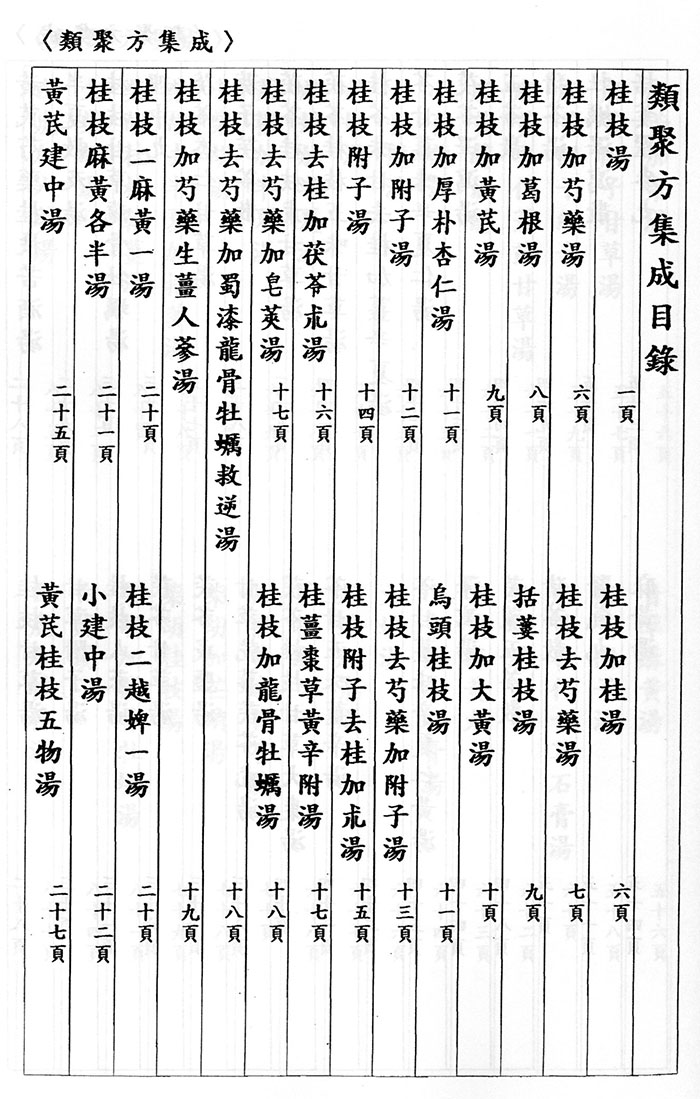 〈類聚方集成〉
類聚方集成目錄
桂枝湯 一頁 桂枝加桂湯 六頁
桂枝加芍藥湯 六頁 桂枝去芍藥湯 七頁
桂枝加葛根湯 八頁 括蔞桂枝湯 九頁
桂枝加黃芪湯 九頁 桂枝加大黃湯 十頁
桂枝加厚朴杏仁湯 十一頁 烏頭桂枝湯 十一頁
桂枝加附子湯 十二頁 桂枝去芍藥加附子湯 十三頁
桂枝附子湯 十四頁 桂枝附子去桂加朮湯 十五頁
桂枝去桂加茯苓朮湯 十六頁 桂薑棗草黃辛附湯 十七頁
桂枝去芍藥加皂莢湯 十七頁 桂枝加龍骨牡蠣湯 十八頁
桂枝去芍藥加蜀漆龍骨牡蠣救逆湯 十八頁
桂枝加芍藥生薑人蔘湯 十九頁
桂枝二麻黃一湯 二十頁 桂枝二越婢一湯 二十頁
桂枝麻黃各半湯 二十一頁 小建中湯 二十二頁
黃芪建中湯 二十五頁 黃芪桂枝五物湯 二十七頁